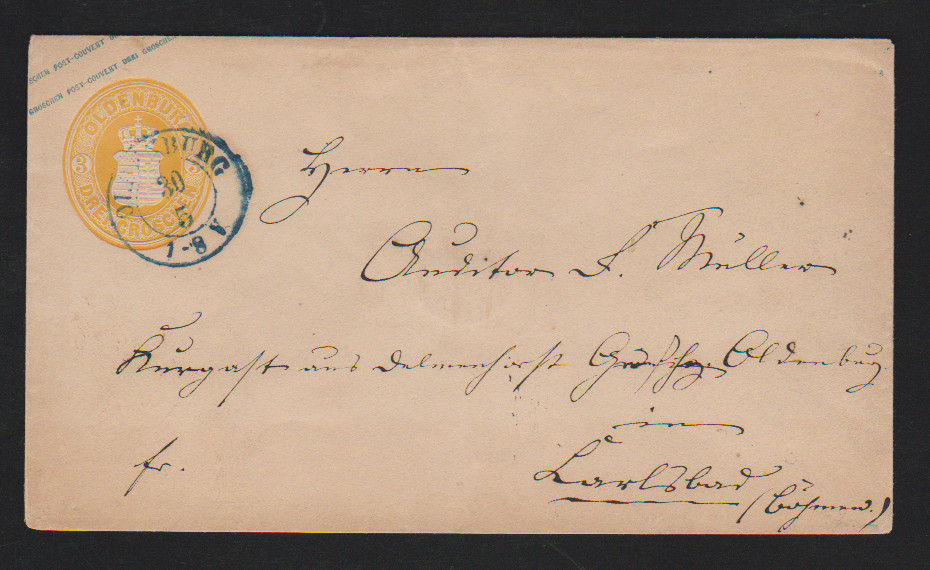 SCHEN POST-COUVERT DREI GROSCHEN
GROSCHEN POST-COUVERT DREI GROSCHEN
OLDENBURG
3 3
DREI GROSCHEN
OLDENBURG
30
5
7-8 V
Herrn
Auditor F. Müller
Kurgast aus Delmenhorst Oldenburg
in
fr.
Karlsbad
(Böhmen.)